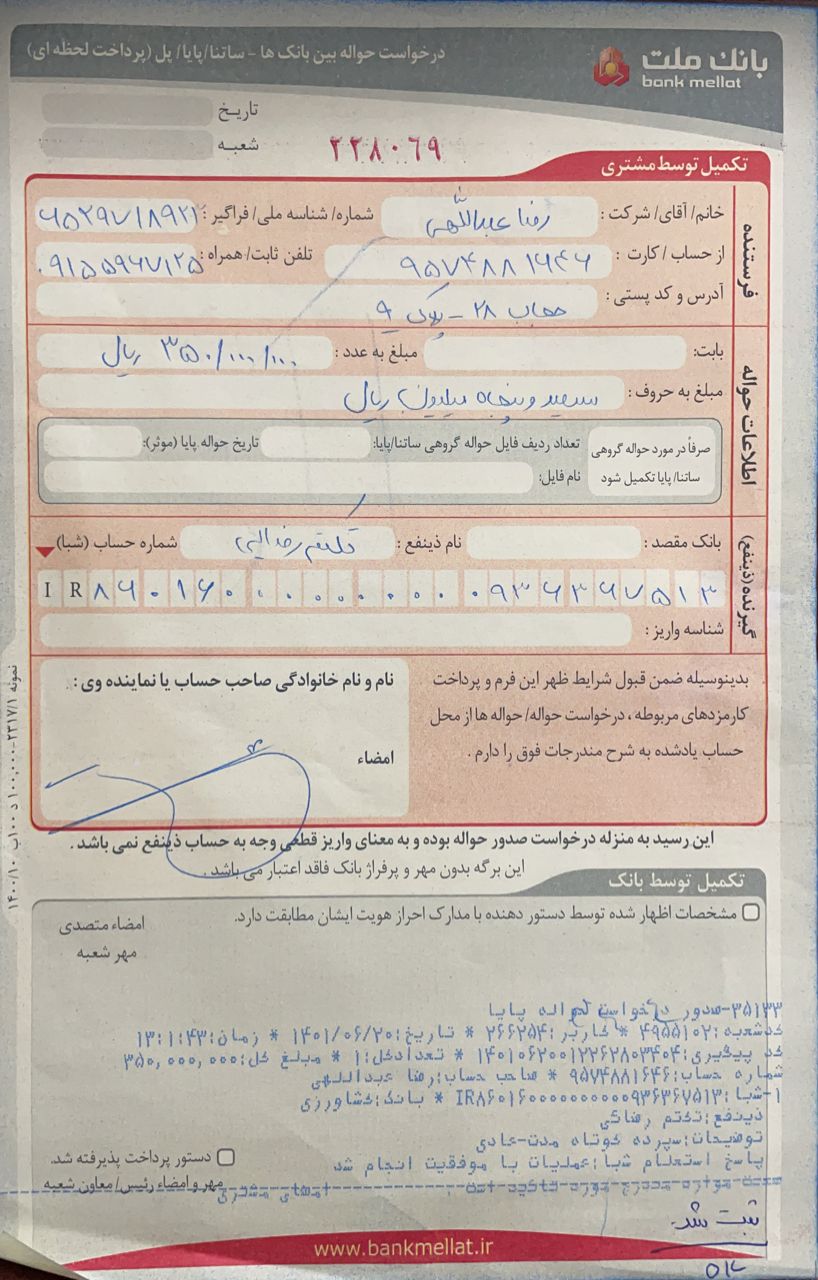 بانک ملت
bank mellat
درخواست حواله بین بانک ها - ساتنا/پایا/ پل (پرداخت لحظه ای)
تاریخ
شعبه
۲۲۸۰۶۹
تکمیل توسط مشتری
فرستنده
خانم/ آقای/ شرکت : رضا عبداللهی شماره/ شناسه ملی/ فراگیر :
از حساب / کارت : ۹۵۷۴۸۸۱۶۴۶ تلفن ثابت/ همراه : ۰۹۱۵۵۹۶۷۱۲۵
آدرس و کد پستی : ۲۸ - پلاک ۹
اطلاعات حواله
بابت: مبلغ به عدد : ۳۵۰/۰۰۰/۰۰۰ ریال
مبلغ به حروف : سیصد و پنجاه میلیون ریال
صرفاً در مورد حواله گروهی ساتنا/ پایا تکمیل شود
تعداد ردیف فایل حواله گروهی ساتنا/پایا: تاریخ حواله پایا (موثر):
نام فایل:
گیرنده (ذینفع)
بانک مقصد : نام ذینفع : شماره حساب (شبا)
IR ۸۶۰۱۶۰۰۰۰۰۰۰۰۰۰۹۳۶۳۶۷۵۱۳
شناسه واریز :
بدینوسیله ضمن قبول شرایط ظهر این فرم و پرداخت
کارمزدهای مربوطه ، درخواست حواله/ حواله ها از محل
حساب یادشده به شرح مندرجات فوق را دارم .
نام و نام خانوادگی صاحب حساب یا نماینده وی :
امضاء
این رسید به منزله درخواست صدور حواله بوده و به معنای واریز قطعی وجه به حساب ذینفع نمی باشد .
این برگه بدون مهر و پرفراژ بانک فاقد اعتبار می باشد .
تکمیل توسط بانک
مشخصات اظهار شده توسط دستور دهنده با مدارک احراز هویت ایشان مطابقت دارد.
امضاء متصدی
مهر شعبه
۳۵۱۳۳-صدور درخواست حواله پایا
کدشعبه:۴۹۵۵۱۰۲ * کاربر:۲۶۶۲۵۴ * تاریخ:۱۴۰۱/۰۶/۲۰ * زمان:۱۳:۱:۴۳
کد پیگیری:۱۴۰۱۰۶۲۰۰۱۲۲۶۲۸۰۳۴۰۴ * تعدادکل:۱ * مبلغ کل:۳۵۰,۰۰۰,۰۰۰
شماره حساب:۹۵۷۴۸۸۱۶۴۶ * صاحب حساب:رضا عبداللهی
۱-شبا:IR۸۶۰۱۶۰۰۰۰۰۰۰۰۰۰۹۳۶۳۶۷۵۱۳ * بانک:کشاورزی
ذینفع:تکتم رضائی
توضیحات:سپرده کوتاه مدت-عادی
پاسخ استعلام شبا:عملیات با موفقیت انجام شد
دستور پرداخت پذیرفته شد.
مهر و امضاء رئیس/ معاون شعبه
امضای مشتری
ثبت شد
www.bankmellat.ir